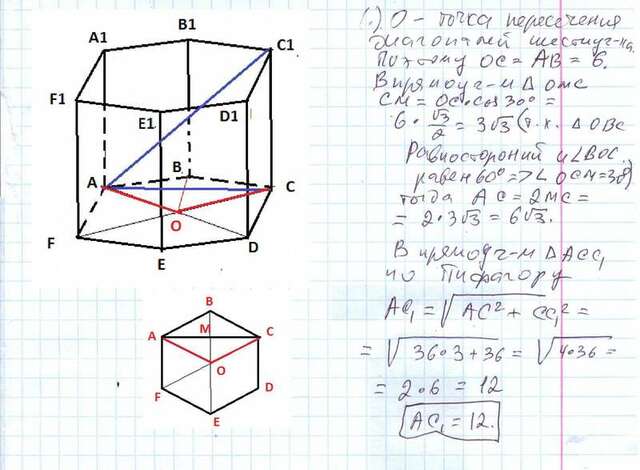 B1
A1
C1
F1
E1
D1
B
A
C
O
F
D
E
B
A
M
C
O
F
D
E
1.) O - точка пересечения
диагоналей шестиуг-ка.
Поэтому OC = AB = 6.
В прямоуг-м Δ OMC
CM = OC·cos 30° =
6·√3/2 = 3√3 (т.к. Δ OBC
равносторонний и ∠BOC
равен 60° => ∠ OCM = 30°)
тогда AC = 2MC =
= 2·3√3 = 6√3.
В прямоуг-м Δ ACC₁
по Пифагору
AC₁ = √AC² + CC₁² =
= √36·3+36 = √4·36 =
= 2·6 = 12
AC₁ = 12.